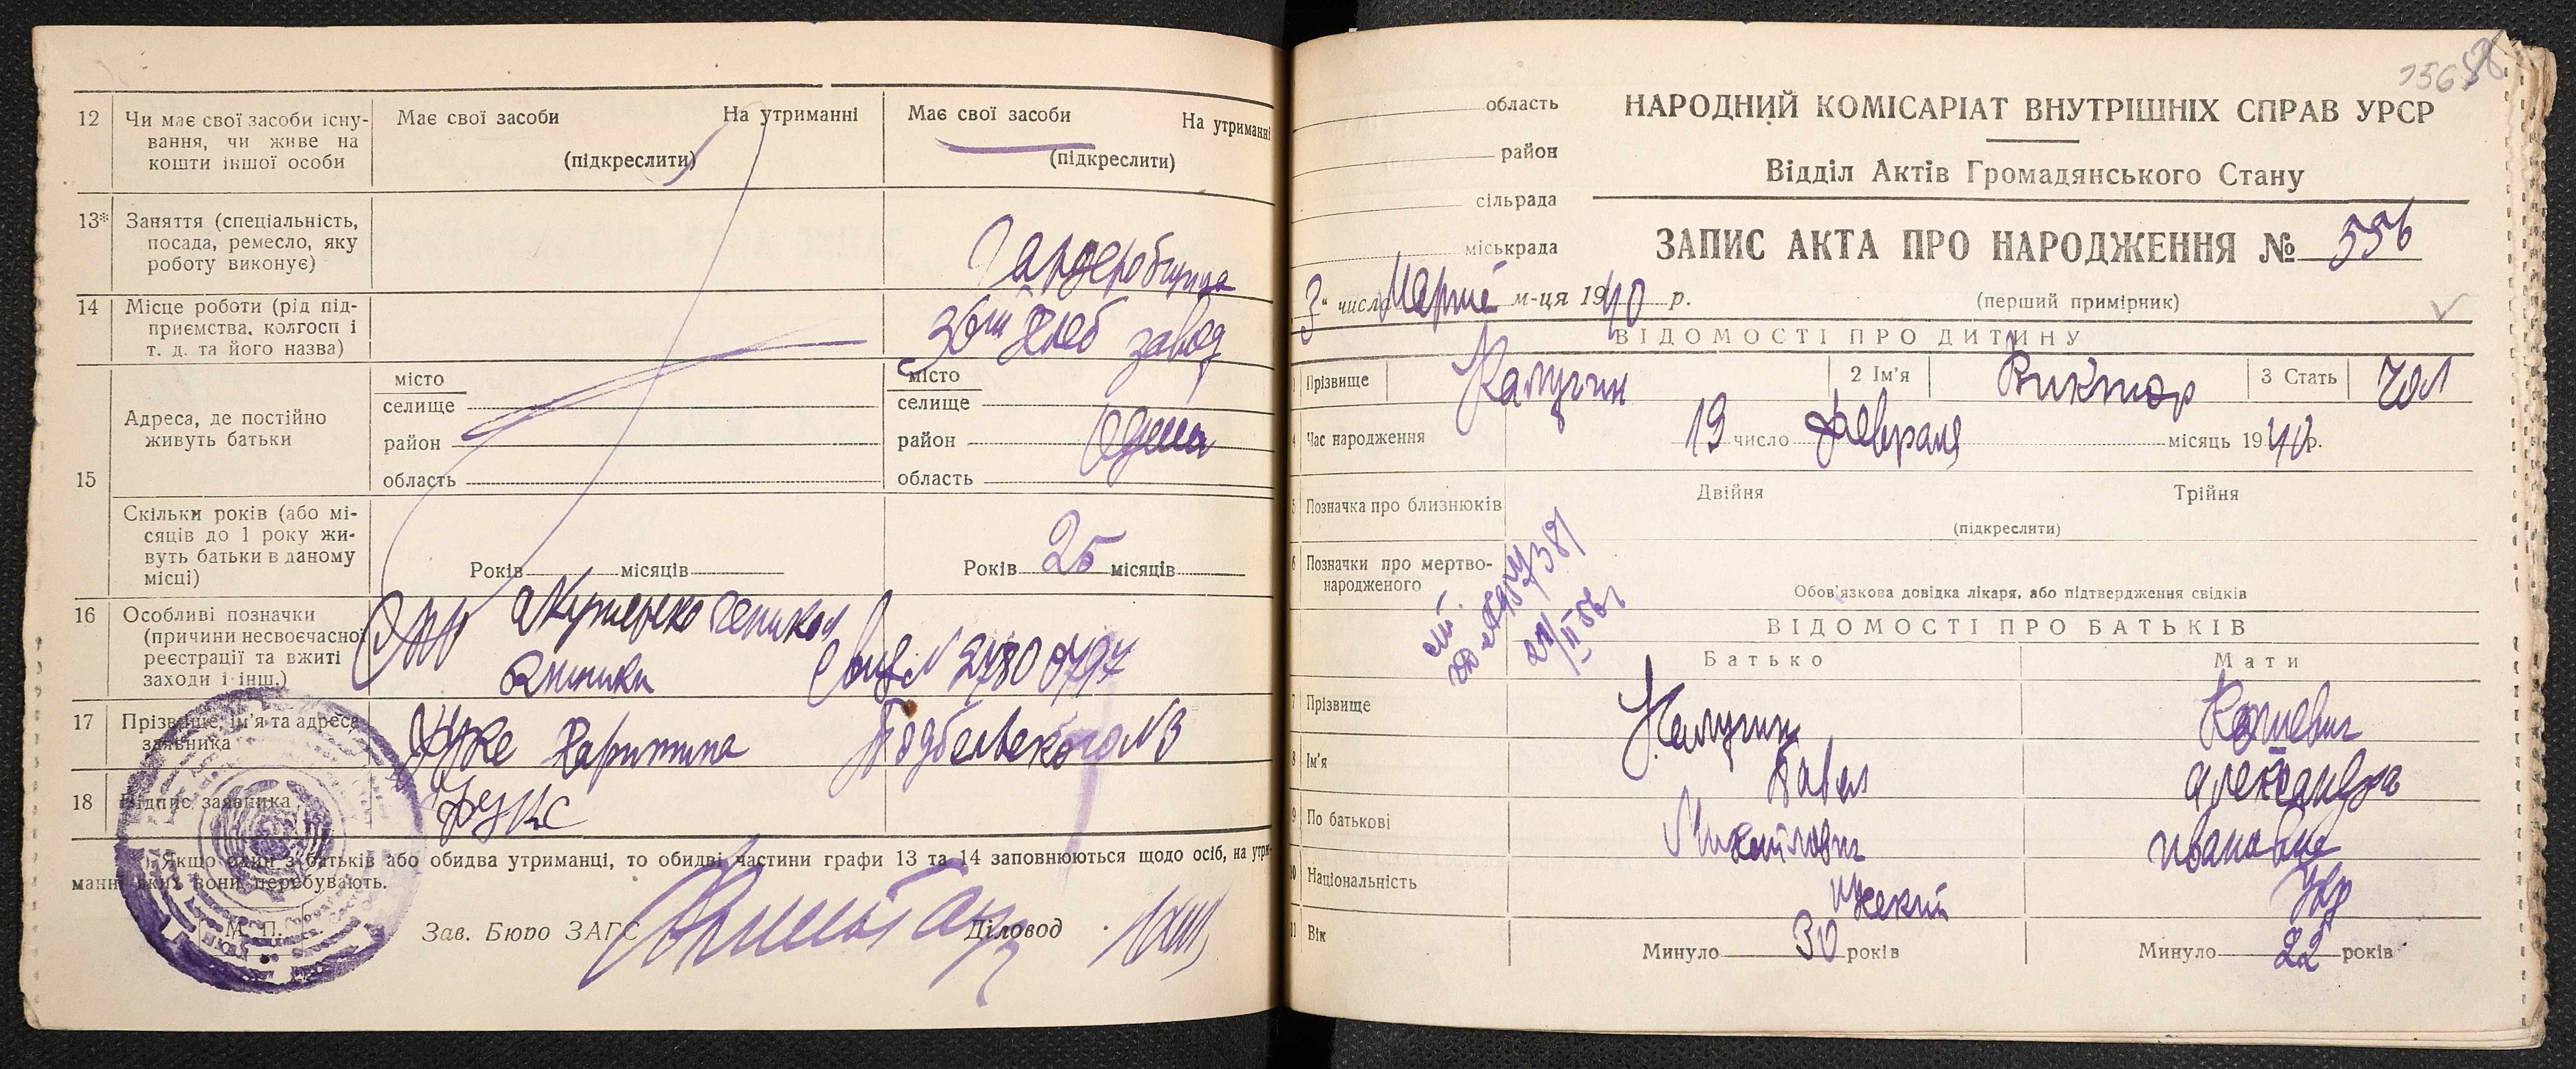 12
Чи має свої засоби існу-
вання, чи живе на
кошти іншої особи
Має свої засоби На утриманні
(підкреслити)
Має свої засоби На утриманні
(підкреслити)
13*
Заняття (спеціальність,
посада, ремесло, яку
роботу виконує)
Гардеробщица
14
Місце роботи (рід під-
приємства, колгосп і
т. д. та його назва)
хлеб завод
15
Адреса, де постійно
живуть батьки
місто
селище
район
область
місто
селище
район Одесса
область
Скільки років (або мі-
сяців до 1 року жи-
вуть батьки в даному
місці)
Років місяців
Років 25 місяців
16
Особливі позначки
(причини несвоєчасної
реєстрації та вжиті
заходи і інш.)
17
Прізвище, ім'я та адреса
заявника
Подбельского №3
18
Підпис заявника
*) Якщо один з батьків або обидва утриманці, то обидві частини графи 13 та 14 заповнюються щодо осіб, на утри-
манні яких вони перебувають.
М. П.
Зав. Бюро ЗАГС Діловод
область
район
сільрада
міськрада
НАРОДНИЙ КОМІСАРІАТ ВНУТРІШНІХ СПРАВ УРСР
Відділ Актів Громадянського Стану
ЗАПИС АКТА ПРО НАРОДЖЕННЯ № 556
3 числа Марта м-ця 1940 р. (перший примірник)
ВІДОМОСТІ ПРО ДИТИНУ
1 Прізвище Калугин 2 Ім'я Виктор 3 Стать чол
4 Час народження 19 число февраля місяць 1940 р.
5 Позначка про близнюків Двійня Трійня
(підкреслити)
6 Позначки про мертво-
народженого
Обов'язкова довідка лікаря, або підтвердження свідків
ВІДОМОСТІ ПРО БАТЬКІВ
Батько Мати
7 Прізвище Калугин
8 Ім'я Павел Александра
9 По батькові Михайлович Ивановна
10 Національність Укр
11 Вік Минуло 30 років Минуло 22 років